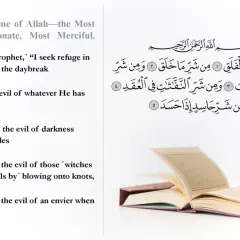 me of Allah—the Most
onate, Most Merciful.
rophet,˹ “I seek refuge in
the daybreak
evil of whatever He has
the evil of darkness
les
the evil of those ˹witches
ls by˺ blowing onto knots,
the evil of an envier when
بِسْمِ اللَّهِ الرَّحْمَٰنِ الرَّحِيمِ
لْفَلَقِ ۝١ مِن شَرِّ مَا خَلَقَ ۝٢ وَمِن شَرِّ
وَمِن شَرِّ النَّفَّاثَاتِ فِي الْعُقَدِ ۝٤
شَرِّ حَاسِدٍ إِذَا حَسَدَ ۝٥